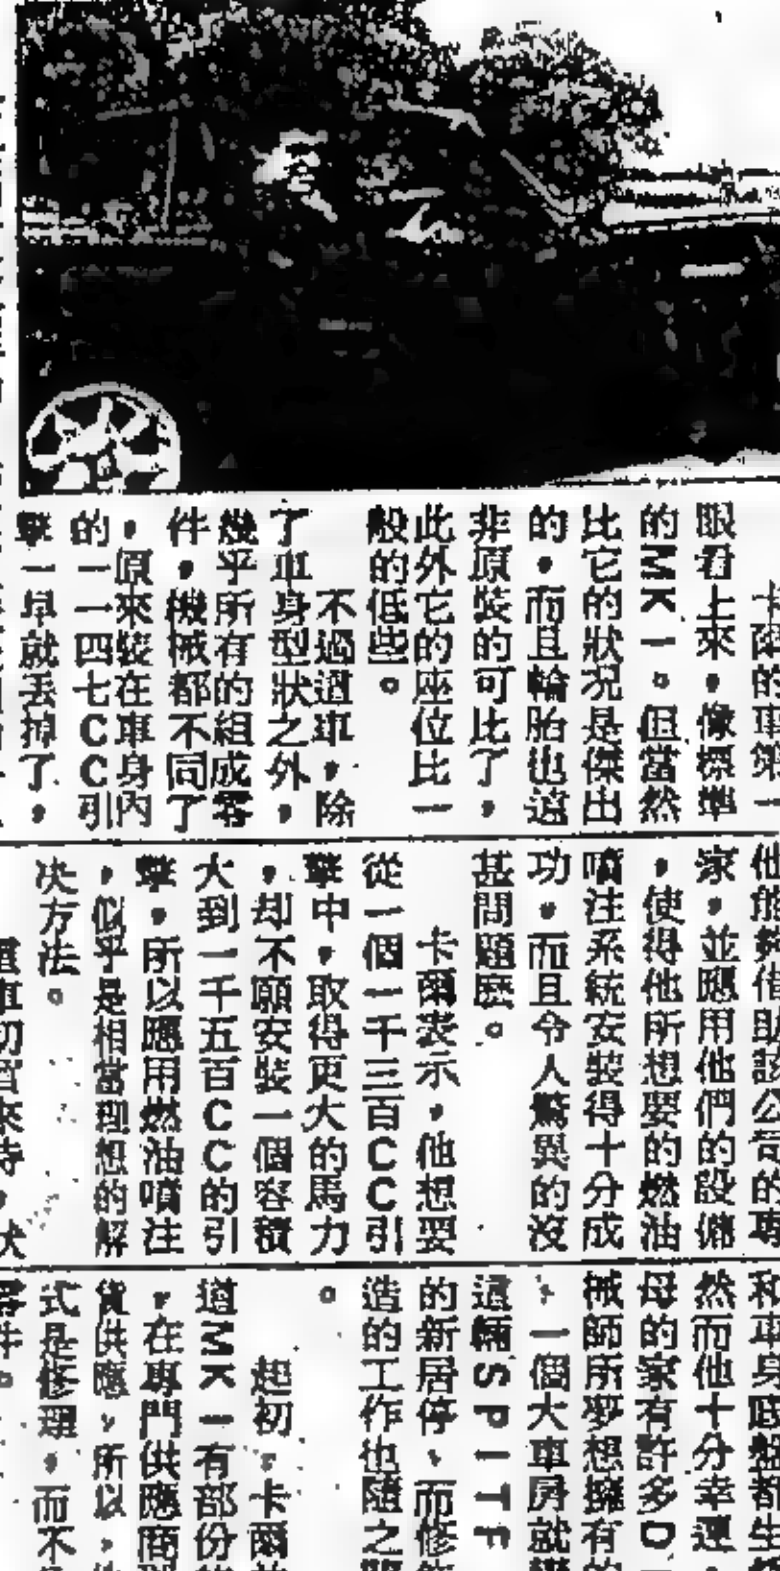 眼看上來，像標準
的MK一。但當然
比它的狀况是傑出
的，而且輪胎也這
非原裝的可比了，
此外它的座位比一
般的低些。
不過這車，除
了車身型狀之外，
幾乎所有的組成零
件，機械都不同了
，原來裝在車身內
的一一四七CC引
擎一早就丟掉了，
家，並應用他們的設備
，使得他所想要的燃油
噴注系統安裝得十分成
功，而且令人驚異的沒
甚問題歷。
卡爾表示，他想要
從一個一千三百CC引
擎中，取得更大的馬力
，却不願安裝一個容積
大到一千五百CC的引
擎，所以應用燃油噴注
，似乎是相當理想的解
决方法。
然而他十分幸運，
母的家有許多D一
械師所夢想擁有的
，一個大車房就
這輛SPITF
的新居停、而修
造的工作也隨之
。
起初，卡爾
道MK一有部份
，在專門供應商
貨供應，所以，
式是修理，而不
零件。